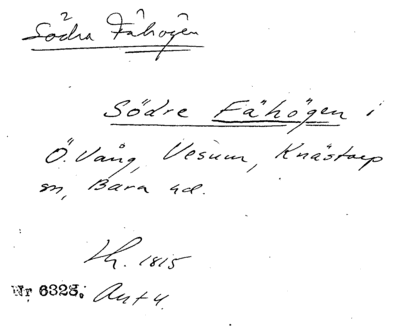 Södra Fåhögen
Södre Fähögen i
Ö. Vång, Vesum, Knästorp
sn, Bara hd.
Lh. 1815
Nr 6323. Ant 4.